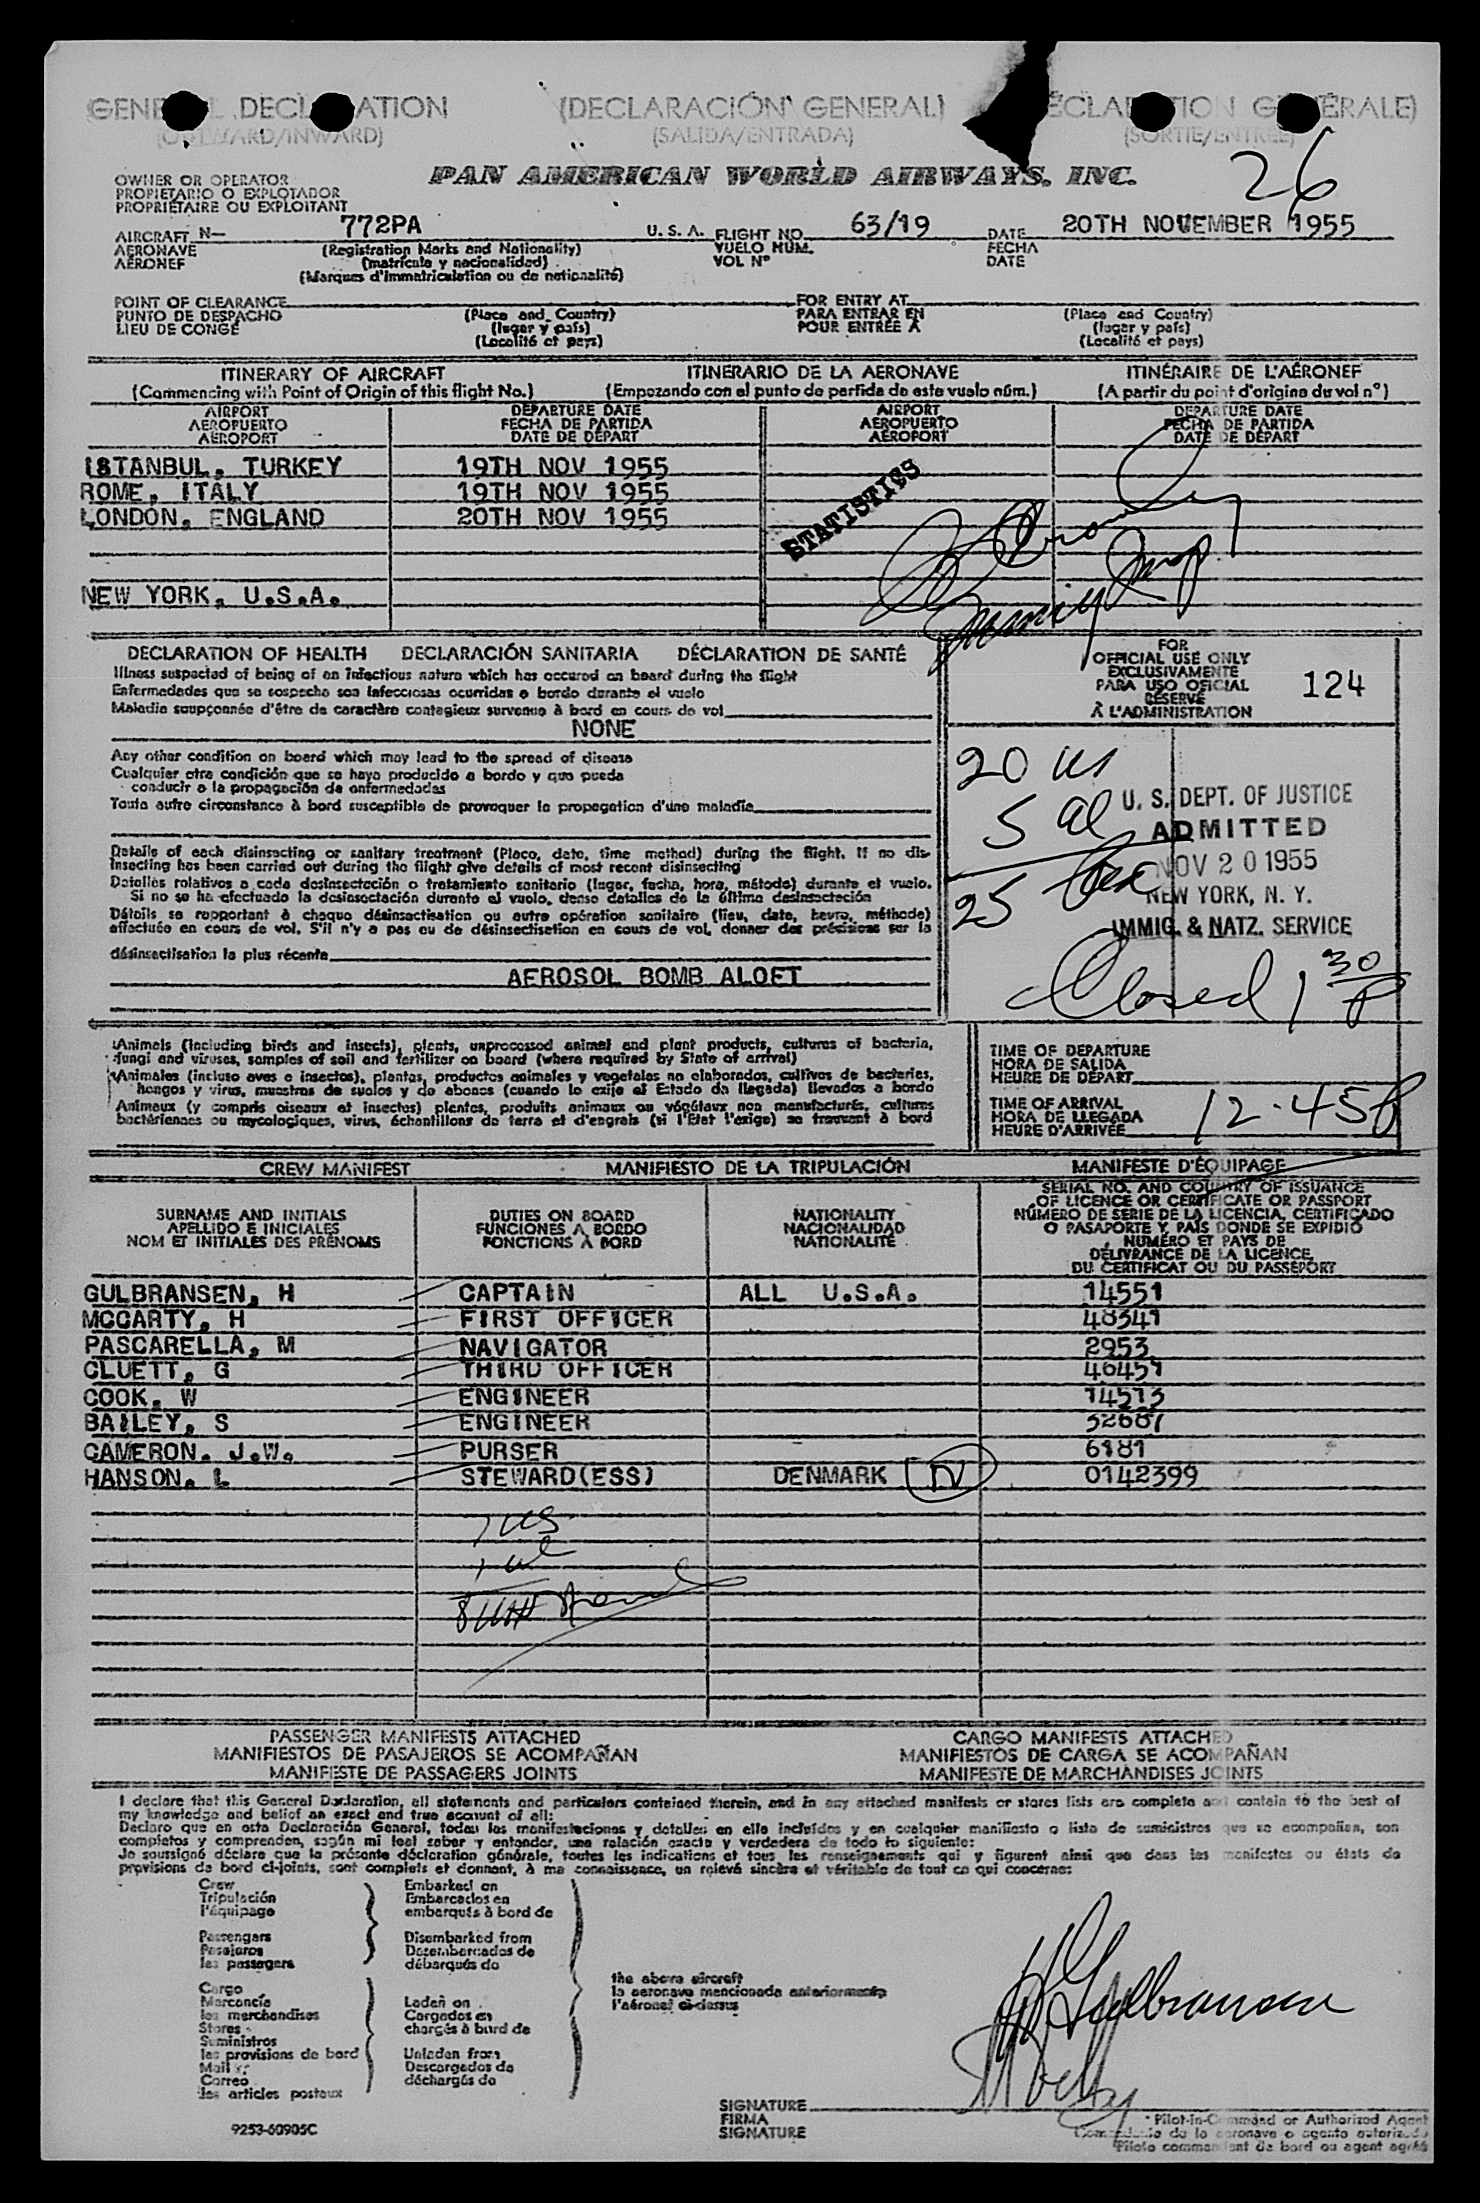 GENE DECL ATION (DECLARACIÓN GENERAL) ÉCLA TION GÉNÉRALE)
(OUTWARD/INWARD) (SALIDA/ENTRADA) (SORTIE/ENTRÉE)
26
OWNER OR OPERATOR PAN AMERICAN WORLD AIRWAYS, INC.
PROPIETARIO O EXPLOTADOR
PROPRIÉTAIRE OU EXPLOITANT
AIRCRAFT N- 772PA U. S. A. FLIGHT NO. 63/19 DATE 20TH NOVEMBER 1955
AERONAVE (Registration Marks and Nationality) VUELO NUM. FECHA
AÉRONEF (matrícula y nacionalidad) VOL Nº DATE
(Marques d'immatriculation ou de nationalité)
POINT OF CLEARANCE FOR ENTRY AT
PUNTO DE DESPACHO (Place and Country) PARA ENTRAR EN (Place and Country)
LIEU DE CONGÉ (lugar y país) POUR ENTRÉE À (lugar y país)
(Localité et pays) (Localité et pays)
ITINERARY OF AIRCRAFT ITINERARIO DE LA AERONAVE ITINÉRAIRE DE L'AÉRONEF
(Commencing with Point of Origin of this flight No.) (Empezando con el punto de partida de este vuelo núm.) (A partir du point d'origine du vol nº)
AIRPORT DEPARTURE DATE AIRPORT DEPARTURE DATE
AEROPUERTO FECHA DE PARTIDA AEROPUERTO FECHA DE PARTIDA
AÉROPORT DATE DE DÉPART AÉROPORT DATE DE DÉPART
ISTANBUL, TURKEY 19TH NOV 1955
ROME, ITALY 19TH NOV 1955
LONDON, ENGLAND 20TH NOV 1955
STATISTICS
NEW YORK, U.S.A.
DECLARATION OF HEALTH DECLARACIÓN SANITARIA DÉCLARATION DE SANTÉ
Illness suspected of being of an infectious nature which has occured on board during the flight
Enfermedades que se sospecha sea infecciosas ocurridas a bordo durante el vuelo
Maladie soupçonnée d'être de caractère contagieux survenue à bord en cours de vol
NONE
FOR
OFFICIAL USE ONLY
EXCLUSIVAMENTE
PARA USO OFICIAL
RÉSERVÉ
À L'ADMINISTRATION
124
Any other condition on board which may lead to the spread of disease
Cualquier otra condición que se haya producido a bordo y que pueda
conducir a la propagación de enfermedades
Toute autre circonstance à bord susceptible de provoquer la propagation d'une maladie
20 us
5 al
25
U. S. DEPT. OF JUSTICE
ADMITTED
NOV 20 1955
NEW YORK, N. Y.
IMMIG. & NATZ. SERVICE
Closed 1 30 P
Details of each disinsecting or sanitary treatment (Place, date, time method) during the flight. If no dis-
insecting has been carried out during the flight give details of most recent disinsecting
Detalles relativos a cada desinsectación o tratamiento sanitario (lugar, fecha, hora, método) durante el vuelo.
Si no se ha efectuado la desinsectación durante el vuelo, dense detalles de la última desinsectación
Détails se rapportant à chaque désinsectisation ou autre opération sanitaire (lieu, date, heure, méthode)
effectuée en cours de vol. S'il n'y a pas eu de désinsectisation en cours de vol, donner des précisions sur la
désinsectisation la plus récente
AEROSOL BOMB ALOFT
Animals (including birds and insects), plants, unprocessed animal and plant products, cultures of bacteria,
fungi and viruses, samples of soil and fertilizer on board (where required by State of arrival)
Animales (incluso aves e insectos), plantas, productos animales y vegetales no elaborados, cultivos de bacterias,
hongos y virus, muestras de suelos y de abonos (cuando lo exija el Estado de llegada) llevados a bordo
Animaux (y compris oiseaux et insectes) plantes, produits animaux ou végétaux non manufacturés, cultures
bactériennes ou mycologiques, virus, échantillons de terre et d'engrais (si l'État l'exige) se trouvant à bord
TIME OF DEPARTURE
HORA DE SALIDA
HEURE DE DÉPART
TIME OF ARRIVAL
HORA DE LLEGADA
HEURE D'ARRIVÉE 12.45P
CREW MANIFEST MANIFIESTO DE LA TRIPULACIÓN MANIFESTE D'ÉQUIPAGE
SURNAME AND INITIALS
APELLIDO E INICIALES
NOM ET INITIALES DES PRÉNOMS
DUTIES ON BOARD
FUNCIONES A BORDO
FONCTIONS À BORD
NATIONALITY
NACIONALIDAD
NATIONALITÉ
SERIAL NO. AND COUNTRY OF ISSUANCE
OF LICENCE OR CERTIFICATE OR PASSPORT
NÚMERO DE SERIE DE LA LICENCIA, CERTIFICADO
O PASAPORTE Y PAÍS DONDE SE EXPIDIÓ
NUMÉRO ET PAYS DE
DÉLIVRANCE DE LA LICENCE,
DU CERTIFICAT OU DU PASSEPORT
GULBRANSEN, H CAPTAIN ALL U.S.A. 14551
MCCARTY, H FIRST OFFICER 48341
PASCARELLA, M NAVIGATOR 2953
CLUETT, G THIRD OFFICER 46451
COOK, W ENGINEER 14513
BAILEY, S ENGINEER 52687
CAMERON. J.W. PURSER 6181
HANSON, L STEWARD(ESS) DENMARK IV 0142399
7 us
1 al
8
PASSENGER MANIFESTS ATTACHED CARGO MANIFESTS ATTACHED
MANIFIESTOS DE PASAJEROS SE ACOMPAÑAN MANIFIESTOS DE CARGA SE ACOMPAÑAN
MANIFESTE DE PASSAGERS JOINTS MANIFESTE DE MARCHANDISES JOINTS
I declare that this General Declaration, all statements and particulars contained therein, and in any attached manifests or stores lists are complete and contain to the best of
my knowledge and belief an exact and true account of all:
Declaro que en esta Declaración General, todas las manifestaciones y detalles en ella incluídos y en cualquier manifiesto o lista de suministros que se acompañen, son
completos y comprenden, según mi leal saber y entender, una relación exacta y verdadera de todo lo siguiente:
Je soussigné déclare que la présente déclaration générale, toutes les indications et tous les renseignements qui y figurent ainsi que dans les manifestes ou états de
provisions de bord ci-joints, sont complets et donnent, à ma connaissance, un relevé sincère et véritable de tout ce qui concerne:
Crew Embarked on
Tripulación Embarcados en
l'équipage embarqués à bord de
Passengers Disembarked from
Pasajeros Desembarcados de
les passagers débarqués de
the above aircraft
la aeronave mencionada anteriormente
l'aéronef ci-dessus
Cargo
Mercancía Laden on
les marchandises Cargados en
Stores chargés à bord de
Suministros
les provisions de bord Unladen from
Mail Descargados de
Correo déchargés de
les articles postaux
H Gulbransen
SIGNATURE
FIRMA
SIGNATURE
Pilot-in-Command or Authorized Agent
Comandante de la aeronave o agente autorizado
Pilote commandant de bord ou agent agréé
9253-60905C